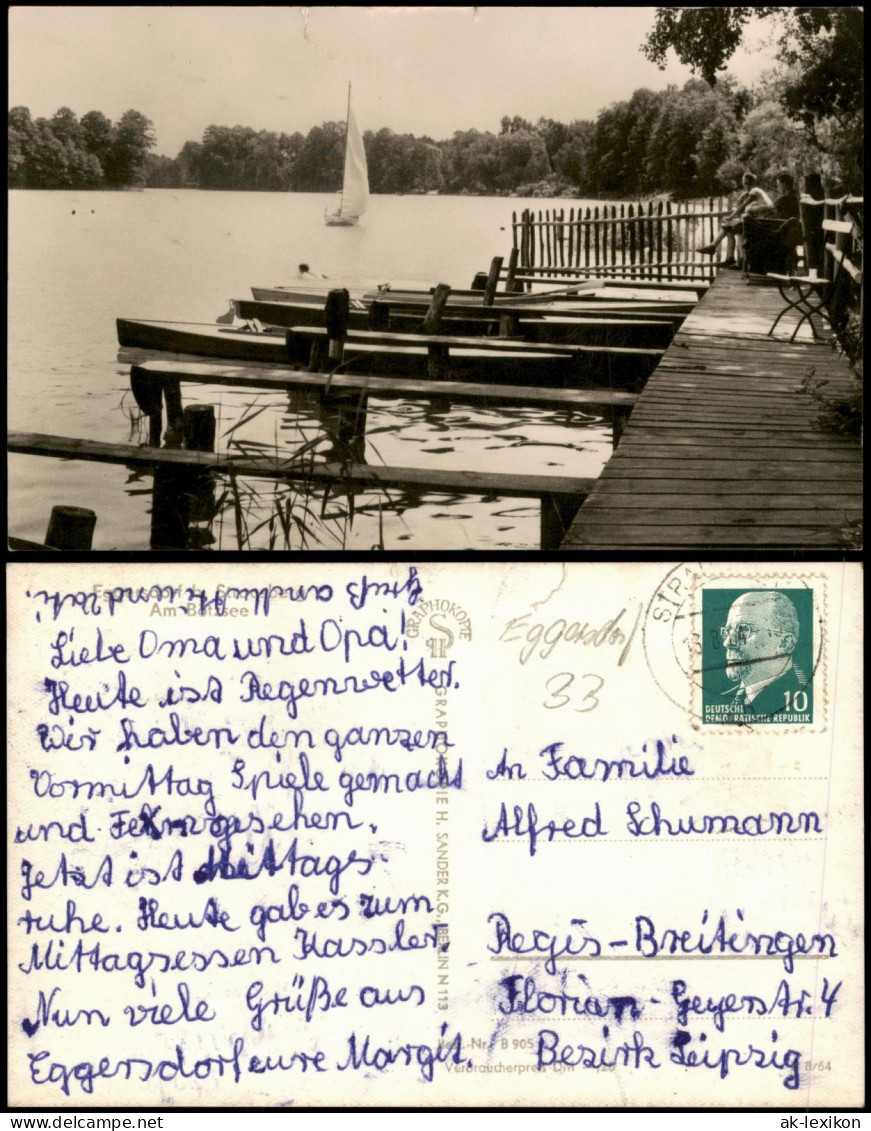 Eggersdorf b. Strausberg
Am Bötzsee
Liebe Oma und Opa!
Heute ist Regenwetter.
Wir haben den ganzen
Vormittag Spiele gemacht
und Fern gesehen.
Jetzt ist Mittags-
ruhe. Heute gab es zum
Mittagsessen Kassler.
Nun viele Grüße aus
Eggersdorf eure Margit.
Gruß an
GRAPHOKOPIE
H. SANDER K.G., BERLIN N 113
Eggersdorf
33
DEUTSCHE
DEMOKRATISCHE REPUBLIK
10
An Familie
Alfred Schumann
Regis-Breitingen
Florian-Geyerstr. 4
Bezirk Leipzig
Best. Nr. B 905
Verbraucherpreis DM
8/64
ak-lexikon